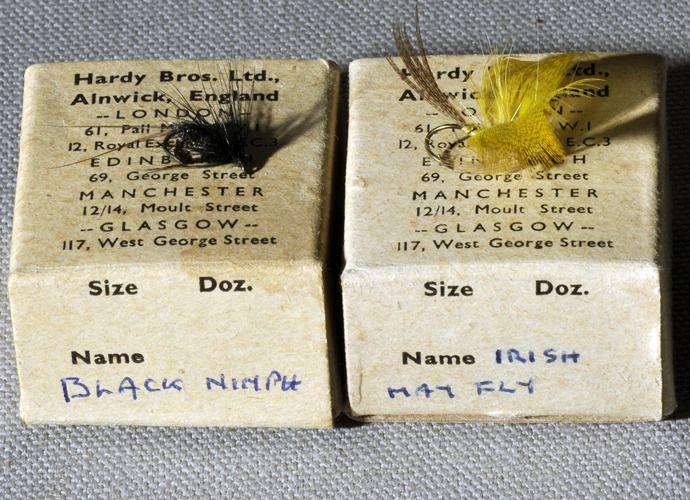 Hardy Bros. Ltd.,
Alnwick, England
--LONDON--
61, Pall
12, Royal E.C.3
EDINBURGH
69, George Street
MANCHESTER
12/14, Moult Street
--GLASGOW--
117, West George Street
Size Doz.
Name
BLACK NIMPH
Hardy Ltd.,
Alnwick, England
61, W.1
12, E.C.3
69, George Street
MANCHESTER
12/14, Moult Street
--GLASGOW--
117, West George Street
Size Doz.
Name IRISH
MAY FLY